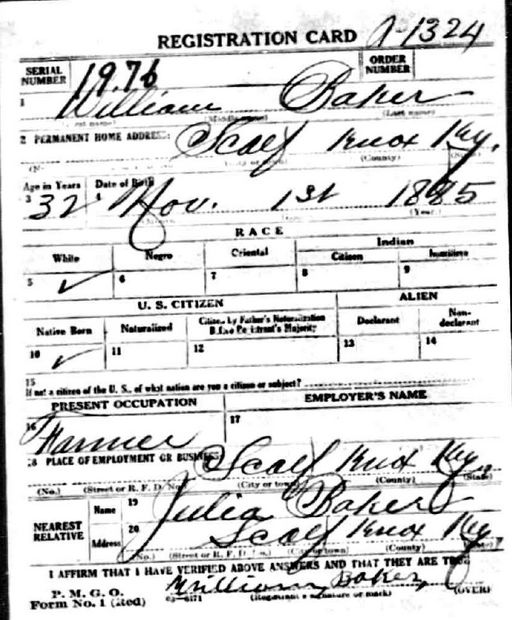 REGISTRATION CARD A-1324
SERIAL NUMBER 1976 ORDER NUMBER
1 William Baker
(Middle name) (Last name)
2 PERMANENT HOME ADDRESS: Scalf Knox Ky.
(City or town) (County) (State)
Age in Years Date of Birth
3 32 Nov. 1st 1885
(Year)
RACE
White Negro Oriental Indian
Citizen
5 ✓ 6 7 8 9
U. S. CITIZEN ALIEN
Native Born Naturalized Citizen by Father's Naturalization Before Registrant's Majority Declarant Non-declarant
10 ✓ 11 12 13 14
15
If not a citizen of the U. S., of what nation are you a citizen or subject?
PRESENT OCCUPATION EMPLOYER'S NAME
16 Farmer 17
18 PLACE OF EMPLOYMENT OR BUSINESS Scalf Knox Ky.
(No.) (Street or R. F. D. No.) (City or town) (County) (State)
NEAREST RELATIVE Name 19 Julia Baker
Address 20 Scalf Knox Ky
(No.) (Street or R. F. D. No.) (City or town) (County)
I AFFIRM THAT I HAVE VERIFIED ABOVE ANSWERS AND THAT THEY ARE TRUE
P. M. G. O.
Form No. 1 (Red) William Baker
(Registrant's signature or mark) (OVER)